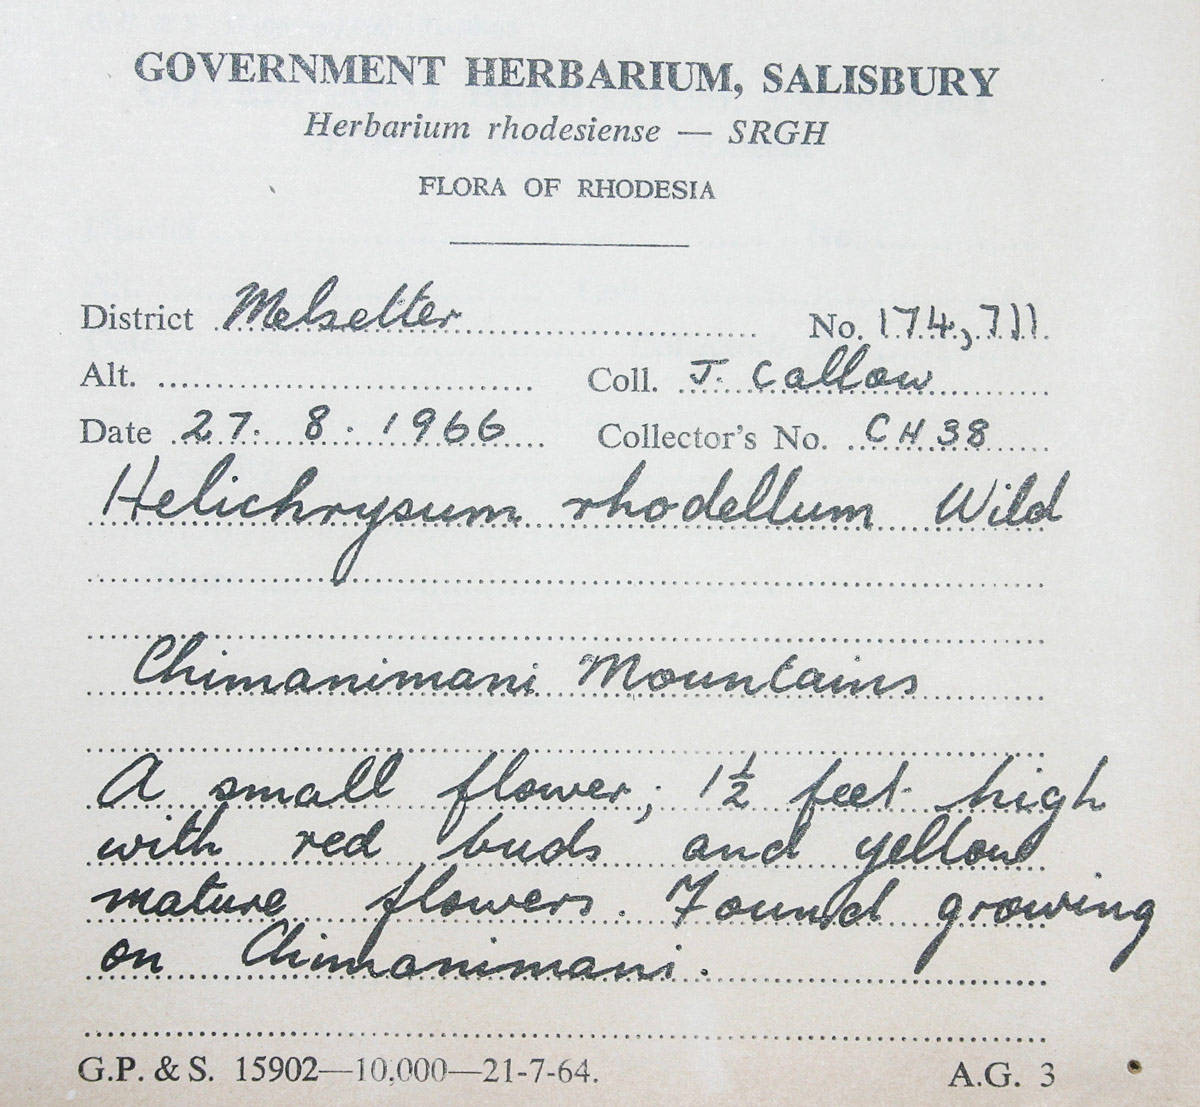 GOVERNMENT HERBARIUM, SALISBURY
Herbarium rhodesiense — SRGH
FLORA OF RHODESIA
District Melsetter No. 174,711.
Alt. Coll. J. Callow
Date 27. 8. 1966 Collector's No. CH38
Helichrysum rhodellum Wild
Chimanimani Mountains
A small flower; 1½ feet high
with red buds and yellow
mature flowers. Found growing
on Chimanimani.
G.P. & S. 15902—10,000—21-7-64. A.G. 3